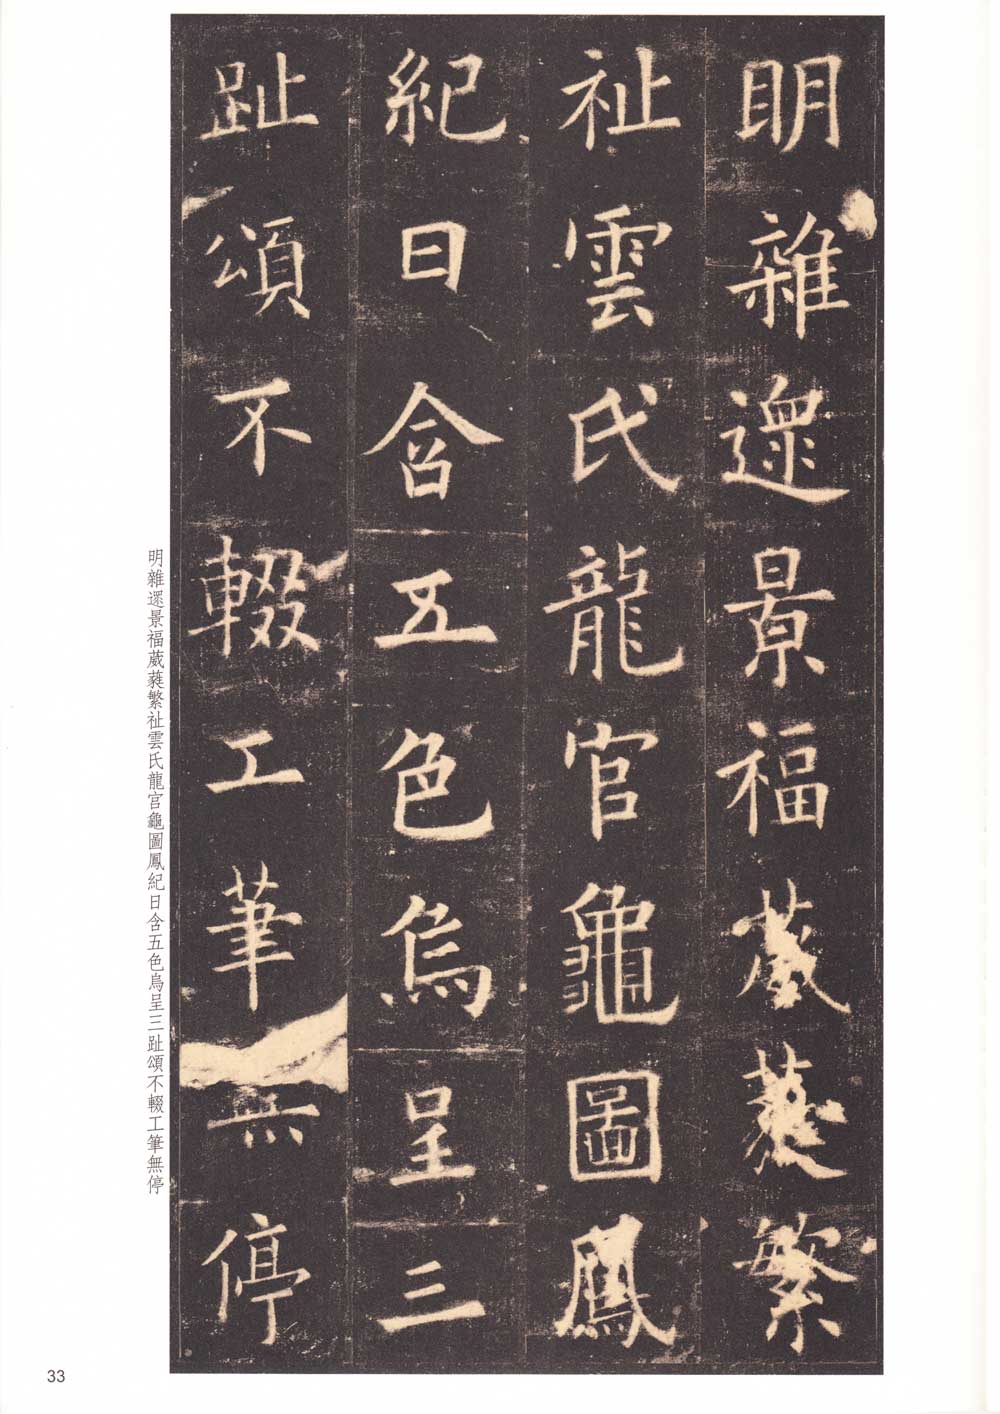 明雜遝景福葳蕤繁
祉雲氏龍官龜圖鳳
紀日含五色烏呈三
趾頌不輟工筆無停
明雜遝景福葳蕤繁祉雲氏龍宮龜圖鳳紀日含五色烏呈三趾頌不輟工筆無停
33